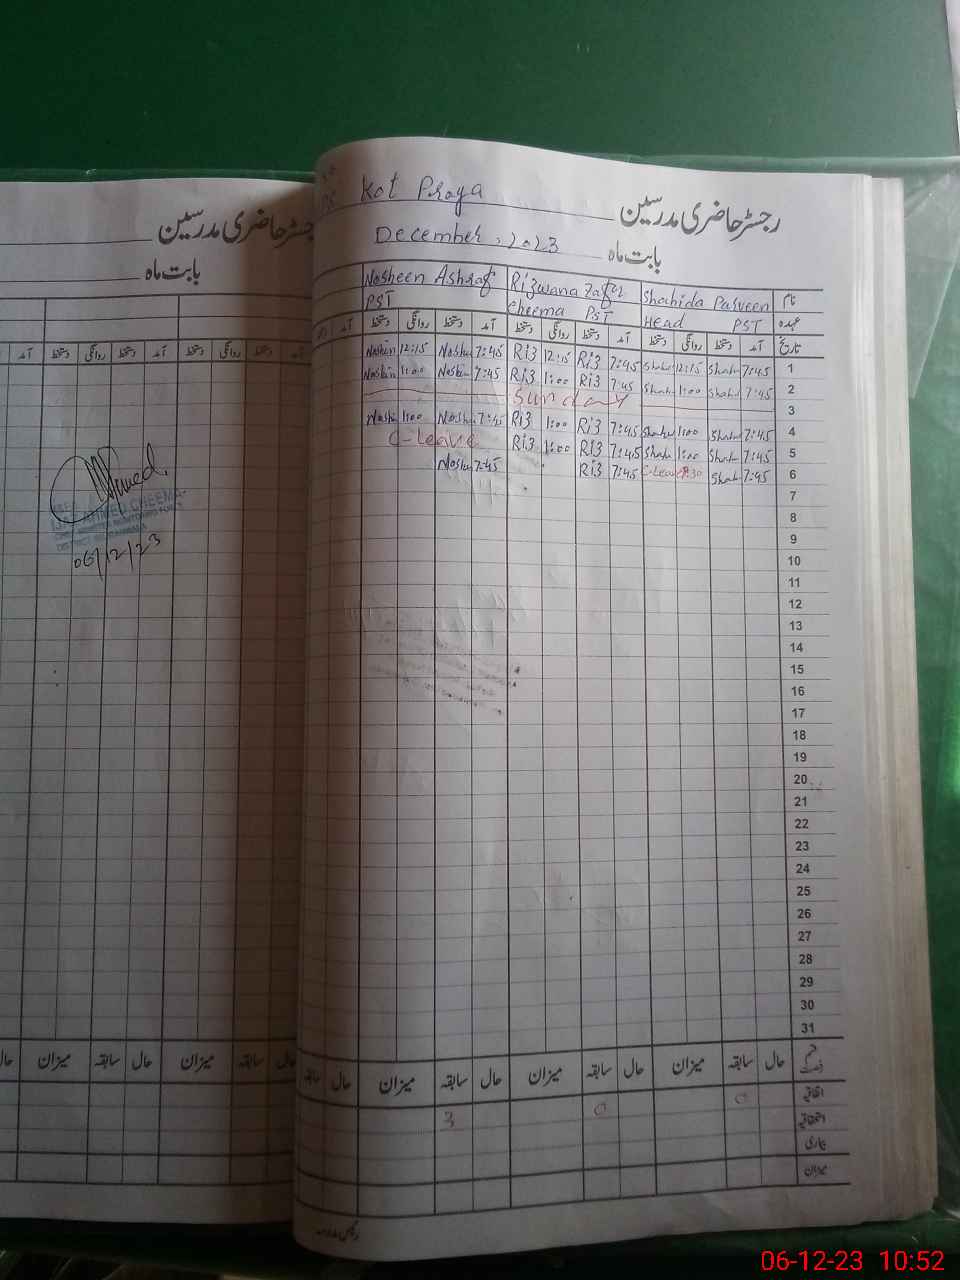 رجسٹر حاضری مدرسین
بابت ماہ
آمد دستخط روانگی دستخط آمد دستخط روانگی دستخط آمد
Ahmed
AHMED CHEEMA
06/12/23
حال سابقہ میزان حال سابقہ میزان حال
Kot Praya رجسٹر حاضری مدرسین
December, 2023 بابت ماہ
نام Shahida Parveen Rizwana Zafar Nosheen Ashraf
عہدہ Head PST Cheema PST PST
تاریخ آمد دستخط روانگی دستخط آمد دستخط روانگی دستخط آمد دستخط روانگی دستخط آمد
1 7:45 Shah 12:15 Shah 7:45 Riz 12:15 Riz 7:45 Nosh 12:15 Noshin
2 7:45 Shah 1:00 Shah 7:45 Riz 1:00 Riz 7:45 Noshin 1:00 Noshin
3 Sunday
4 7:45 Shah 1:00 Shah 7:45 Riz 1:00 Riz 7:45 Nosh 1:00 Nosh
5 7:45 Shah 1:00 Shah 7:45 Riz 1:00 Riz C-Leave
6 7:45 Shah C-Leave 7:45 Riz 7:45 Nosh
7
8
9
10
11
12
13
14
15
16
17
18
19
20
21
22
23
24
25
26
27
28
29
30
31
قسم رخصت حال سابقہ میزان حال سابقہ میزان حال سابقہ میزان حال سابقہ
اتفاقیہ 0 0 3
استحقاقیہ
بیماری
میزان
06-12-23 10:52